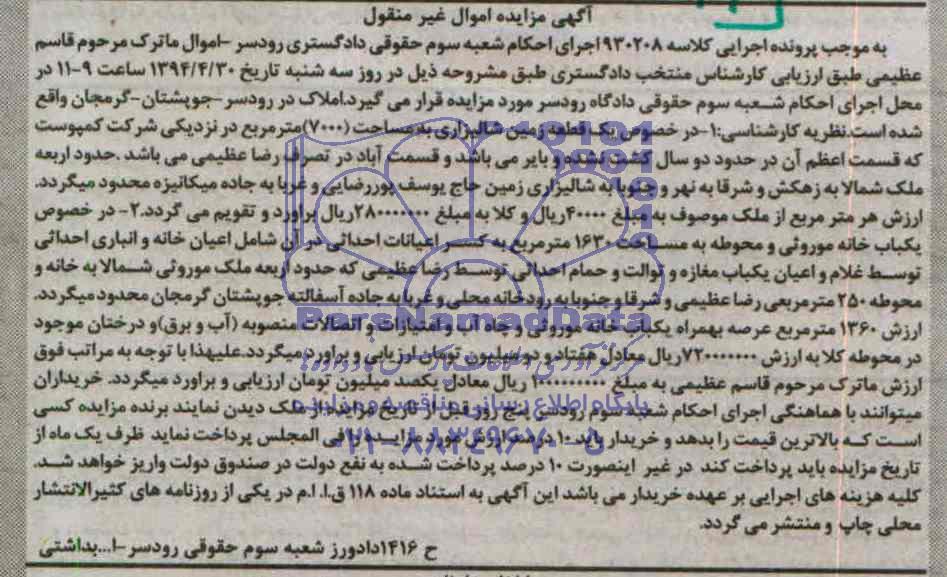 آگهی مزایده اموال غیر منقول
به موجب پرونده اجرایی کلاسه ۹۳۰۲۰۸ اجرای احکام شعبه سوم حقوقی دادگستری رودسر -اموال ماترک مرحوم قاسم
عظیمی طبق ارزیابی کارشناس منتخب دادگستری طبق مشروحه ذیل در روز سه شنبه تاریخ ۱۳۹۴/۴/۳۰ ساعت ۹-۱۱ در
محل اجرای احکام شعبه سوم حقوقی دادگاه رودسر مورد مزایده قرار می گیرد.املاک در رودسر-جوپشتان-گرمجان واقع
شده است.نظریه کارشناسی:۱-در خصوص یک قطعه زمین شالیزاری به مساحت (۷۰۰۰)مترمربع در نزدیکی شرکت کمپوست
که قسمت اعظم آن در حدود دو سال کشت نشده و بایر می باشد و قسمت آباد در تصرف رضا عظیمی می باشد .حدود اربعه
ملک شمالا به زهکش و شرقا به نهر و جنوبا به شالیزاری زمین حاج یوسف پوررضایی و غربا به جاده میکانیزه محدود میگردد.
ارزش هر متر مربع از ملک موصوف به مبلغ ۴۰۰۰۰ریال و کلا به مبلغ ۲۸۰۰۰۰۰۰۰ریال براورد و تقویم می گردد.۲- در خصوص
یکباب خانه موروثی و محوطه به مساحت ۱۶۳۰ مترمربع به کسر اعیانات احداثی در آن شامل اعیان خانه و انباری احداثی
توسط غلام و اعیان یکباب مغازه و توالت و حمام احداثی توسط رضا عظیمی که حدود اربعه ملک موروثی شمالا به خانه و
محوطه ۲۵۰ مترمربعی رضا عظیمی و شرقا و جنوبا به رودخانه محلی و غربا به جاده آسفالته جوپشتان گرمجان محدود میگردد.
ارزش ۱۳۶۰ مترمربع عرصه بهمراه یکباب خانه موروثی و چاه آب و امتیازات و اتصالات منصوبه (آب و برق)و درختان موجود
در محوطه کلا به ارزش ۷۲۰۰۰۰۰۰۰ریال معادل هفتاد و دو میلیون تومان ارزیابی و براورد میگردد.علیهذا با توجه به مراتب فوق
ارزش ماترک مرحوم قاسم عظیمی به مبلغ ۱۰۰۰۰۰۰۰۰۰ ریال معادل یکصد میلیون تومان ارزیابی و براورد میگردد. خریداران
میتوانند با هماهنگی اجرای احکام شعبه سوم رودسر پنج روز قبل از تاریخ مزایده از ملک دیدن نمایند برنده مزایده کسی
است که بالاترین قیمت را بدهد و خریدار باید ۱۰ درصد ارزش مورد مزایده را فی المجلس پرداخت نماید ظرف یک ماه از
تاریخ مزایده باید پرداخت کند در غیر اینصورت ۱۰ درصد پرداخت شده به نفع دولت در صندوق دولت واریز خواهد شد.
کلیه هزینه های اجرایی بر عهده خریدار می باشد این آگهی به استناد ماده ۱۱۸ ق.ا.ا.م در یکی از روزنامه های کثیرالانتشار
محلی چاپ و منتشر می گردد.
ح ۱۴۱۶دادورز شعبه سوم حقوقی رودسر-ا...بداشتی
ParsNamadData
پایگاه اطلاع رسانی مناقصه و مزایده
۰۲۱-۸۸۳۴۹۶۷۰-۵